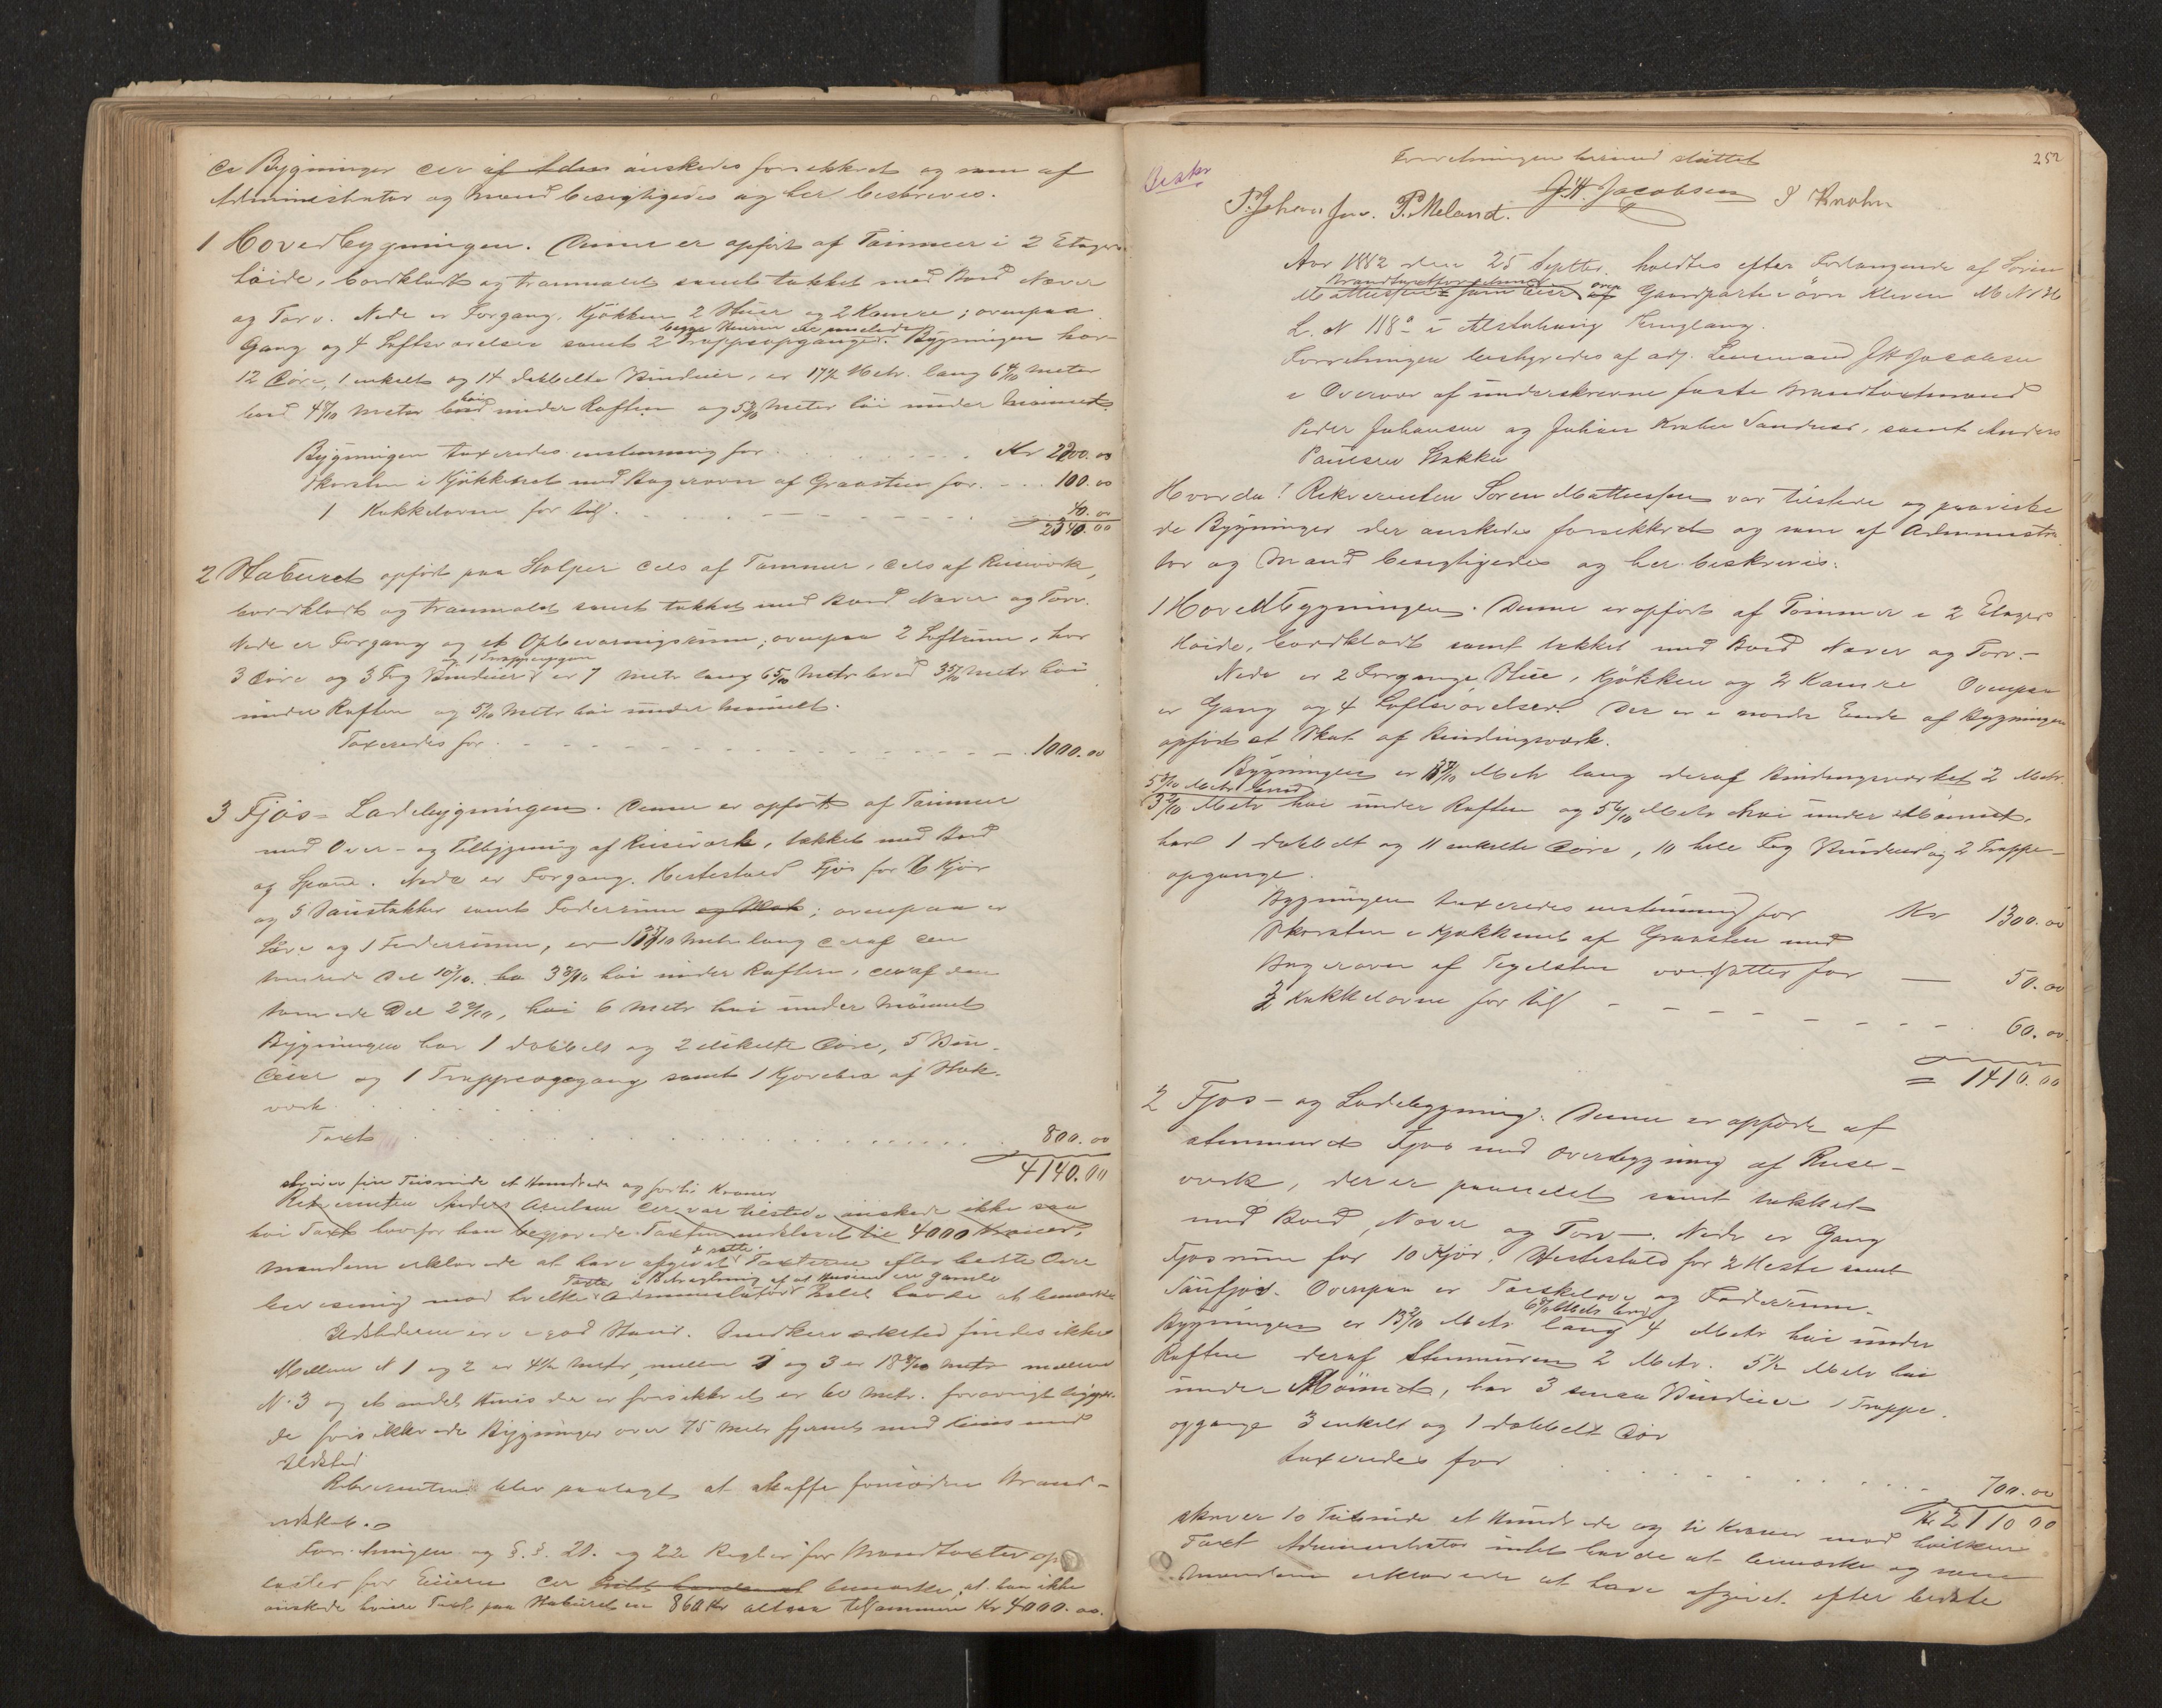 de Bygninger der af ønskedes forsikkret og som af
Administrator og Mænd besigtigedes og her beskreves.
1 Hovedbygningen. Denne er opført af Tømmer i 2 Etagers
høide, bordklædt og tranmalet samt tækket med Bord Næver
og Torv. Nede er Forgang, Kjøkken 2 Stuer og 2 Kamre; ovenpaa
Gang og 4 Loftsværelser samt 2 Trappeopgange. Bygningen har
12 Døre, 1 enkelt og 14 dobbelte Vinduer, er 17½ Metr. lang 6 4/10 Meter
bred 4 8/10 Meter høi under Raften og 5 9/10 Meter høi under Mønnet
Bygningen taxeredes enstemmig for . . . Kr 2200.00
Skorsten i Kjøkkenet med Bagerovn af Graasten for . . . 100.00
1 Kakkelovn for tils . . . 40.00
2340.00
2 Staburet opført paa Stolper dels af Tømmer, dels af Reisverk,
bordklædt og tranmalet samt tækket med Bord Næver og Torv.
Nede er Forgang og et Opbevaringsrum; ovenpaa 2 Loftrum, har
og 1 Trappeopgang
3 Døre og 3 Fag Vinduer er 7 Metr lang 6 5/10 Metr bred 3 5/10 Metr høi
under Raften og 5 Metr høi under Mønnet.
Taxeredes for . . . 1000.00
3 Fjøs- Ladebygningen. Denne er opført af Tømmer
med Over- og Tilbygning af Reisverk, tækket med Bord
og Spaan. Nede er Forgang. Hestestald Fjøs for 6 Kjør
og 5 Saustakker samt Foderrum og ; ovenpaa er
Løve og 1 Foderrum, er Metr lang deraf den
tømrede Del 10 høi under Raften, deraf den
tømrede Del 2 9/10, høi 6 Metr høi under Mønnet
Bygningen har 1 dobbelt og 2 enkelte Døre, 5 Vin-
duer og 1 Trappeopgang samt 1 Kjørebro af Stok-
verk.
Taxt . . . 800.00
4140.00
skriver fire Tusinde et Hundrede og forti Kroner
Rekvirenten Anders der var tilstede ønskede ikke saa
høi Taxt hvorfor han begjærede Taxten nedsat til 4000 Kroner,
Mændene erklærede at have afgivet Taxterne efter bedste Over
bevisning mod hvilke Administrator intet havde at bemærke
Ildstederne er i god Stand. Snedkerværksted findes ikke
Mellem N 1 og 2 er 4½ Metr, mellem 1 og 3 er 18 Metr mellem
N. 3 og et andet Huus der er forsikkret er 60 Metr. forøvrigt ligger
de forsikkrede Bygninger over 75 Metr fjernet med Huus med
Ildsted
Rekvirenten blev paalagt at skaffe fornøden Brand-
redskab.
Forretningen og §.§. 21. og 22 Regler for Brandtaxter op
læstes for Eieren der intet havde at bemærke, at han ikke
ønskede høiere Taxt paa Staburet en 860 Kr altsaa tilsammen Kr 4000.00.
252
Forretningen hermed sluttet
P. Johansen. P. Meland. J.H. Jacobsen J Krohn
Aar 1882 den 25 Septbr. holdtes efter Forlangende af Søren
Brandtaxtforretning over
Mattiesen som Eier af Gaardparten øvre Kleven M N 36
L. N 118 a i Alstahaug Tinglaug.
Forretningen bestyredes af adj. Lensmand JH Jacobsen
i Overvær af underskrevne faste Brandtaxtmænd
Peder Johansen og Johan Krohn Sandnes, samt Anders
Paulsen Stokke
Hvorda! Rekvirenten Søren Mattiesen var tilstede og paaviste
de Bygninger der ønskedes forsikkret og som af Administra
tor og Mænd besigtigedes og her beskreves:
1 Hovedbygningen. Denne er opført af Tømmer i 2 Etagers
Høide, bordklædt samt tækket med Bord Næver og Torv.-
Nede er 2 Forgange, Stue, Kjøkken og 2 Kamre Ovenpaa
er Gang og 4 Loftsværelser. Der er i nordre Ende af Bygningen
opført et Skot af Bindingsverk.
Bygningen er Metr lang deraf Bindingsverket 2 Metr.
5 8/10 Metr bred
3 9/10 Metr høi under Raften og 5 6/10 Metr høi under Mønnet,
har 1 dobbelt og 11 enkelte Døre, 10 hele Fag Vinduer og 2 Trappe-
opgange.
Bygningen taxeredes enstemmig for Kr 1300.00
Skorsten i Kjøkkenet af Graasten med
Bagerovn af Tegelsten ovensatter for — 50.00
2 Kakkelovne for tils - - - 60.00
= 1410.00
2 Fjøs- og Ladebygning. Denne er opført af
stenmuret Fjøs med Overbygning af Reise-
verk, der er paanelet samt tækket
med Bord, Næver og Torv -. Nede er Gang
Fjøsrum for 10 Kjør. Hestestald for 2 Heste samt
Saufjøs. Ovenpaa er Tærskelove og Foderrum.
6 Metr bred
Bygningen er 13 2/10 Metr lang 4 Metr høi under
Raften deraf Stenmuren 2 Metr. 5½ Metr høi
under Mønnet, har 3 smaa Vinduer 1 Trappe-
opgange 3 enkelt og 1 dobbelt Dør
taxeredes for . . . 700.00
Kr 2110 00
skriver to Tusinde et Hundrede og ti Kroner mod hvilken
Taxt Administrator intet havde at bemærke og som
Mændene erklærede at have afgivet efter bedste